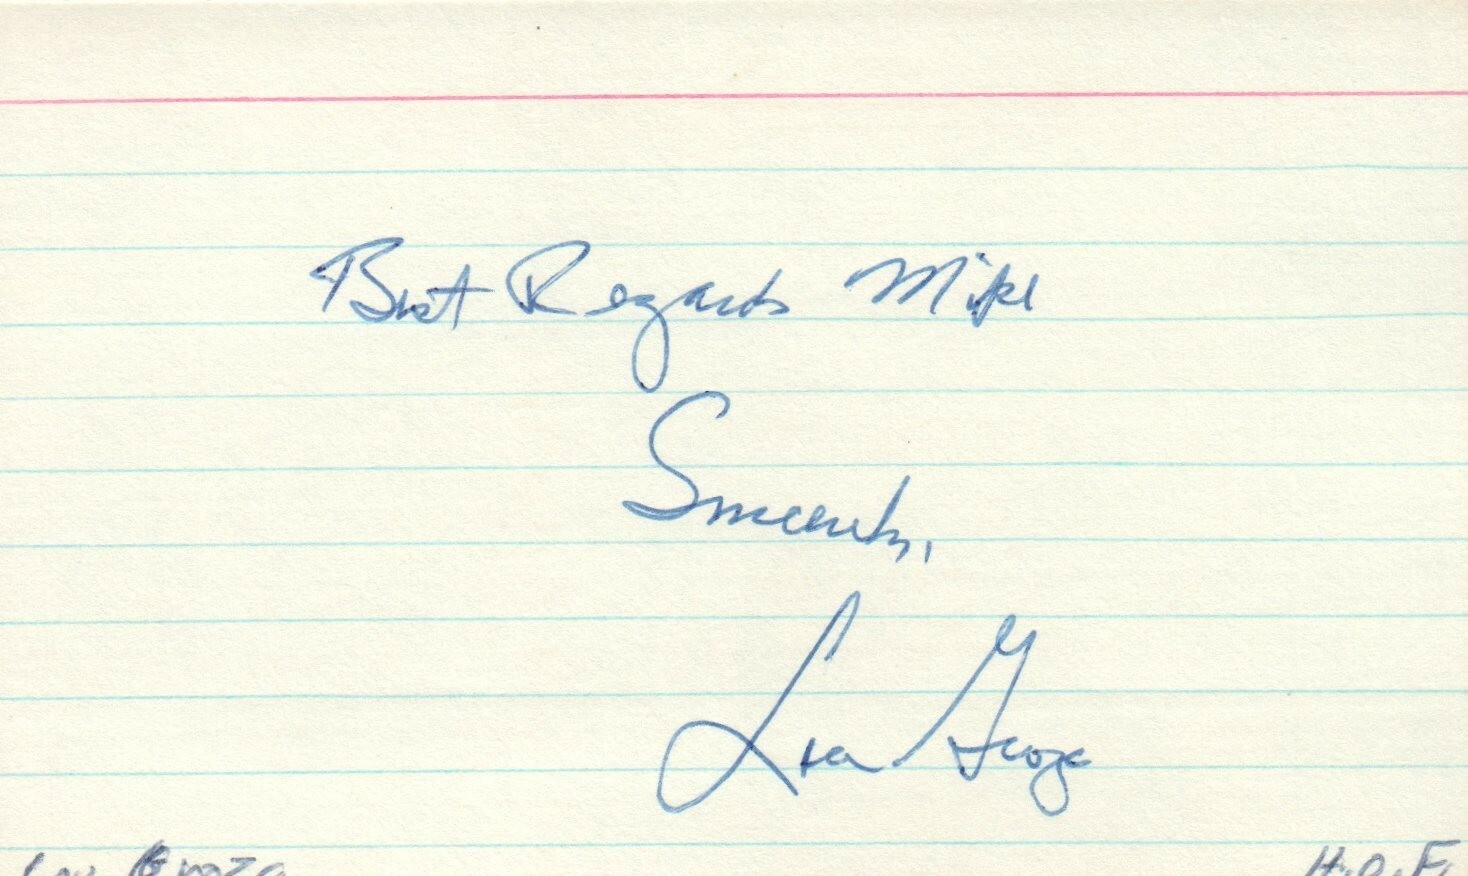 Best Regards Mike
Sincerely,
Lou Groza
Lou Groza H.O.F.